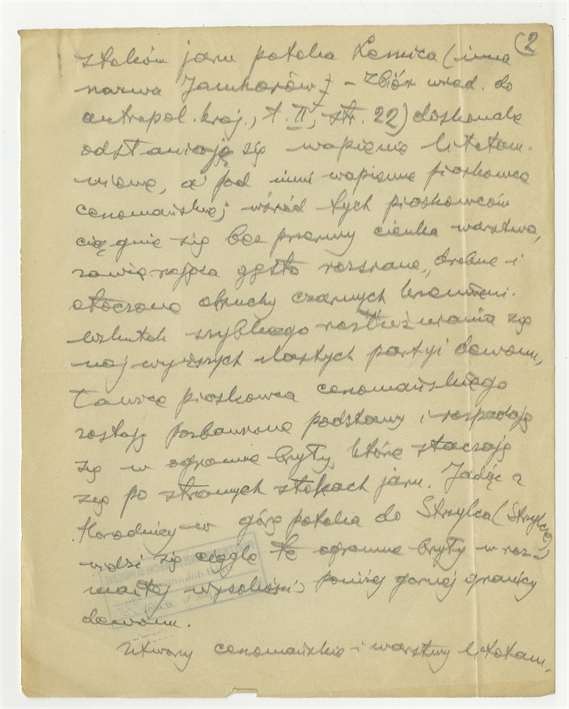 (2
stoków jaru potoka Łomica (inna
nazwa Jamhorów) – Zbiór wiad. do
antropol. kraj., t. II, str. 22) doskonale
odsłaniają się wapienie litotam-
niowe, a pod nimi wapienne piaskowce
cenomańskiej wśród tych piaskowców
ciągnie się bez przerwy cienka warstwa,
zawierająca gęsto rozsiane, drobne i
otoczone okruchy czarnych krzemieni.
wskutek szybkiego rozluźniania się
najwyższych ilastych partyi dewonu,
ławice piaskowca cenomańskiego
zostają pozbawione podstawy i rozpadają
się w ogromne bryły, które staczają
się po stromych stokach jaru. Jadąc z
Horodnicy w górę potoka do Strzylcza (Strylcze)
widzi się ciągle te ogromne bryły w roz-
maitej wysokości poniżej górnej granicy
dewonu.
Utwory cenomańskie i warstwy litotam-